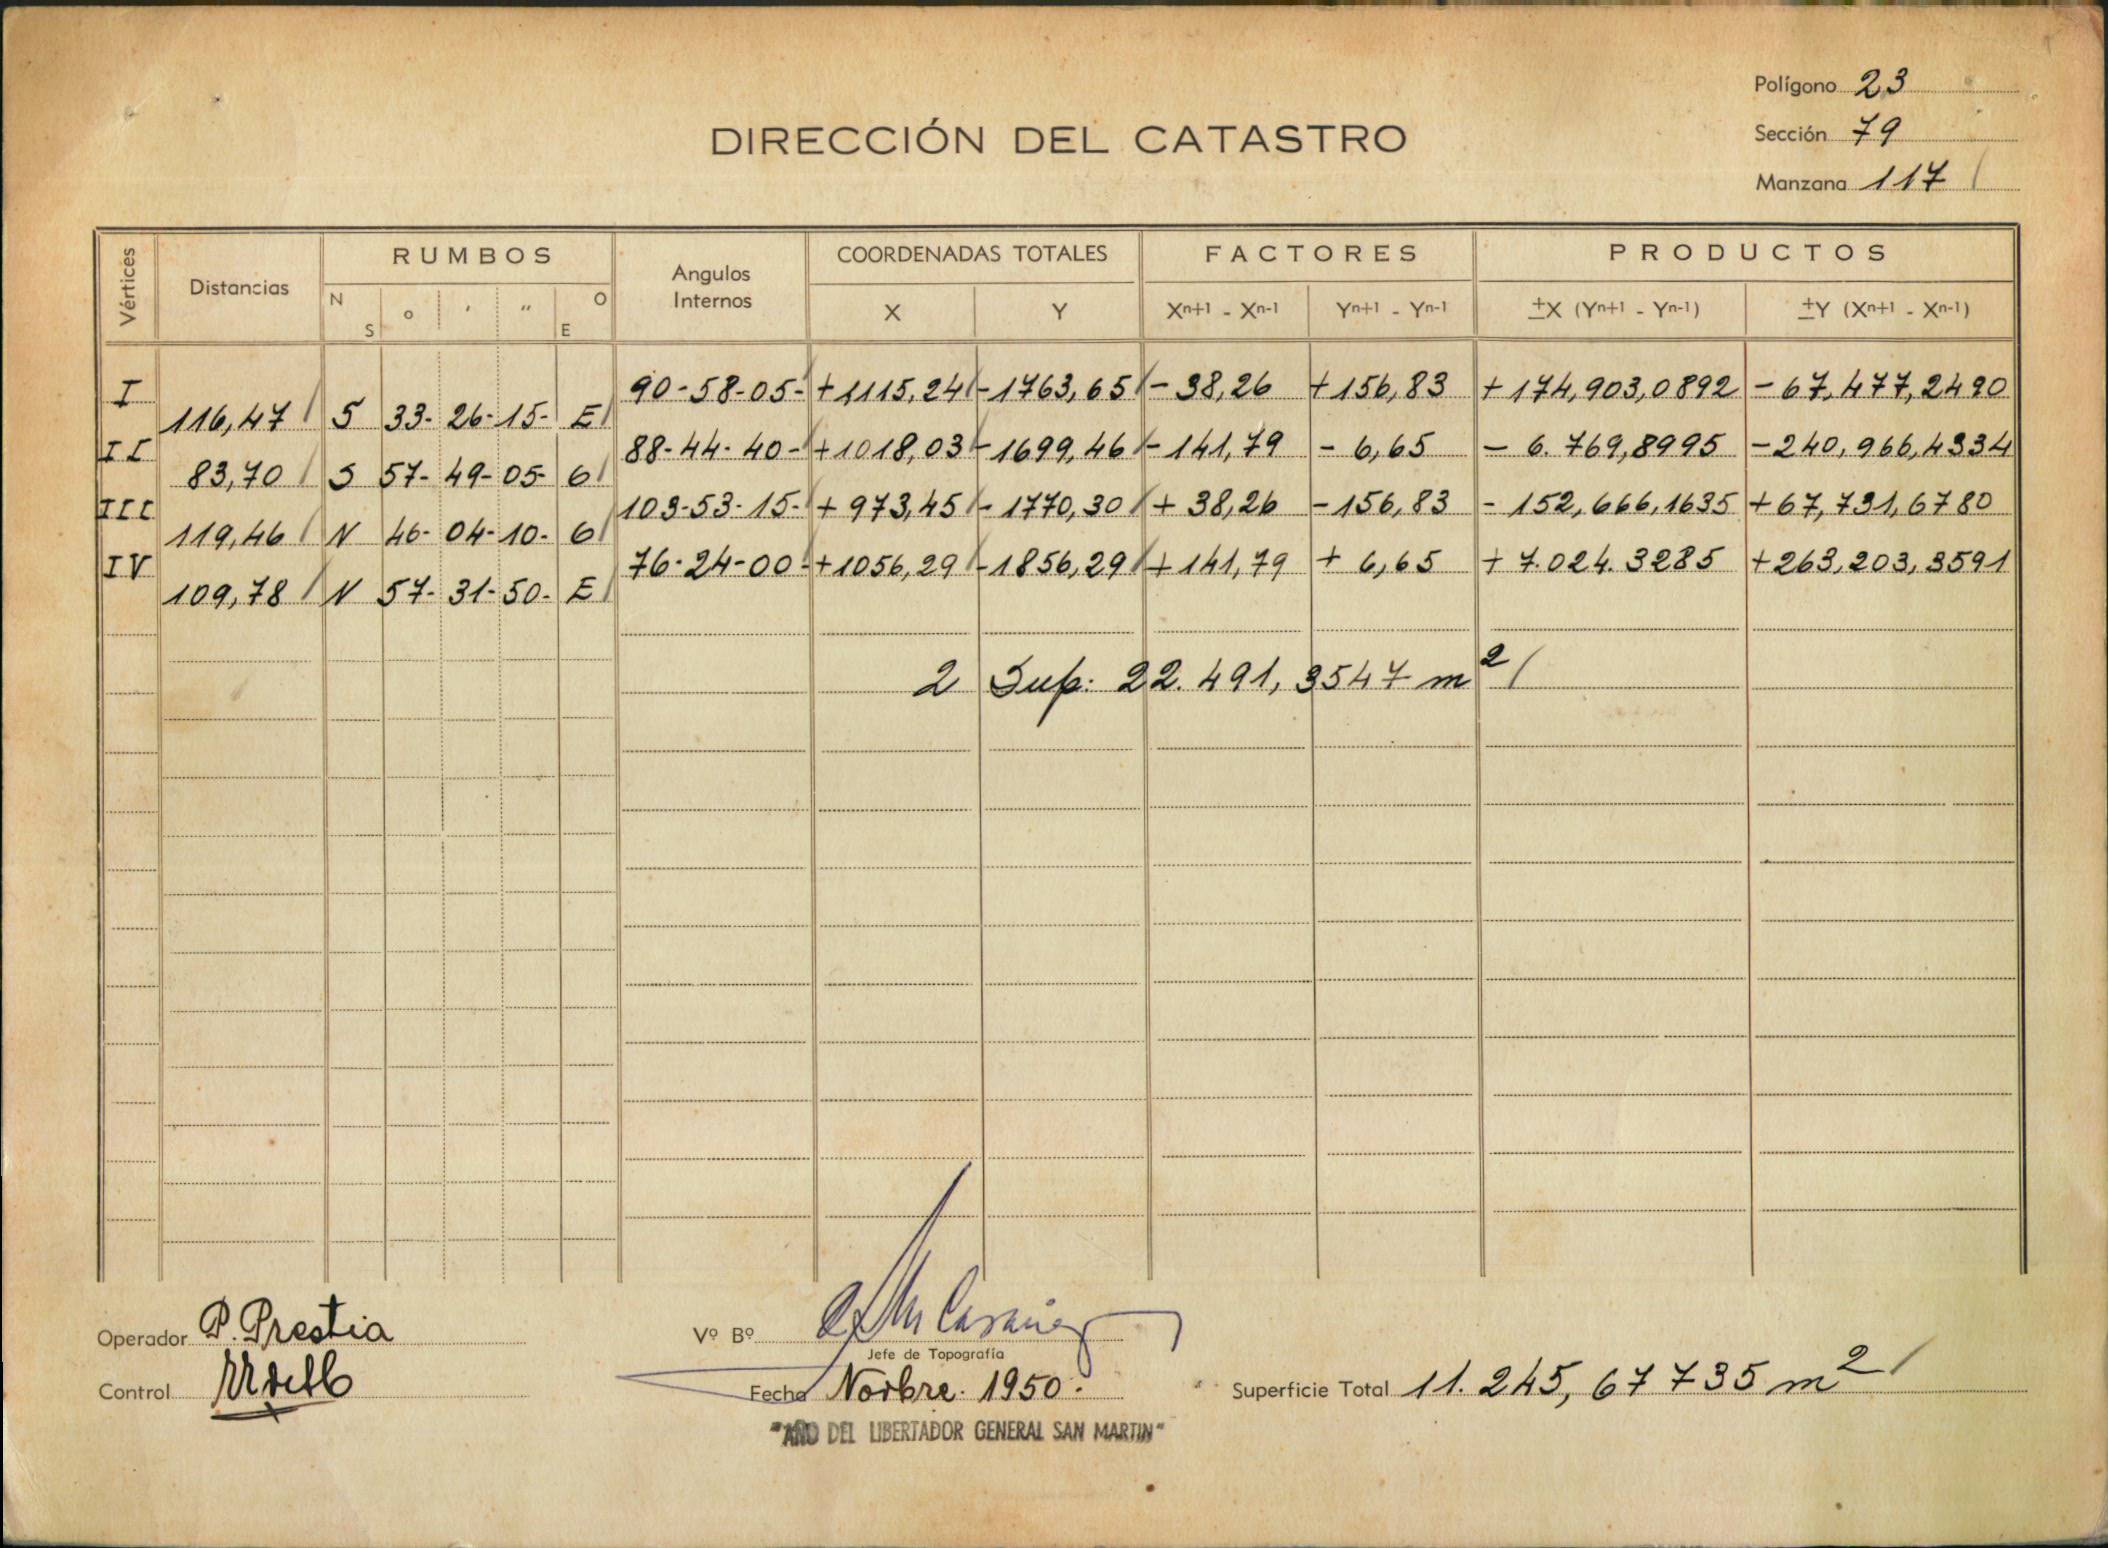 Polígono 23
DIRECCIÓN DEL CATASTRO
Sección 79
Manzana 117
Vértices Distancias RUMBOS Angulos Internos COORDENADAS TOTALES FACTORES PRODUCTOS
N S o ' " O E X Y Xn+1 - Xn-1 Yn+1 - Yn-1 ±X (Yn+1 - Yn-1) ±Y (Xn+1 - Xn-1)
I 90-58-05- +1115,24 -1763,65 -38,26 +156,83 +174,903,0892 -67,477,2490
116,47 S 33-26-15- E
II 88-44-40- +1018,03 -1699,46 -141,79 -6,65 -6.769,8995 -240,966,4334
83,70 S 57-49-05- O
III 103-53-15- +973,45 -1770,30 +38,26 -156,83 -152,666,1635 +67,731,6780
119,46 N 46-04-10- O
IV 76-24-00- +1056,29 -1856,29 +141,79 +6,65 +7.024.3285 +263,203,3591
109,78 N 57-31-50- E
2 Sup: 22.491,3547 m2
Operador P. Prestia
Vº Bº
Jefe de Topografía
Control
Fecha Novbre. 1950.
Superficie Total 11.245,67735 m2
"AÑO DEL LIBERTADOR GENERAL SAN MARTIN"